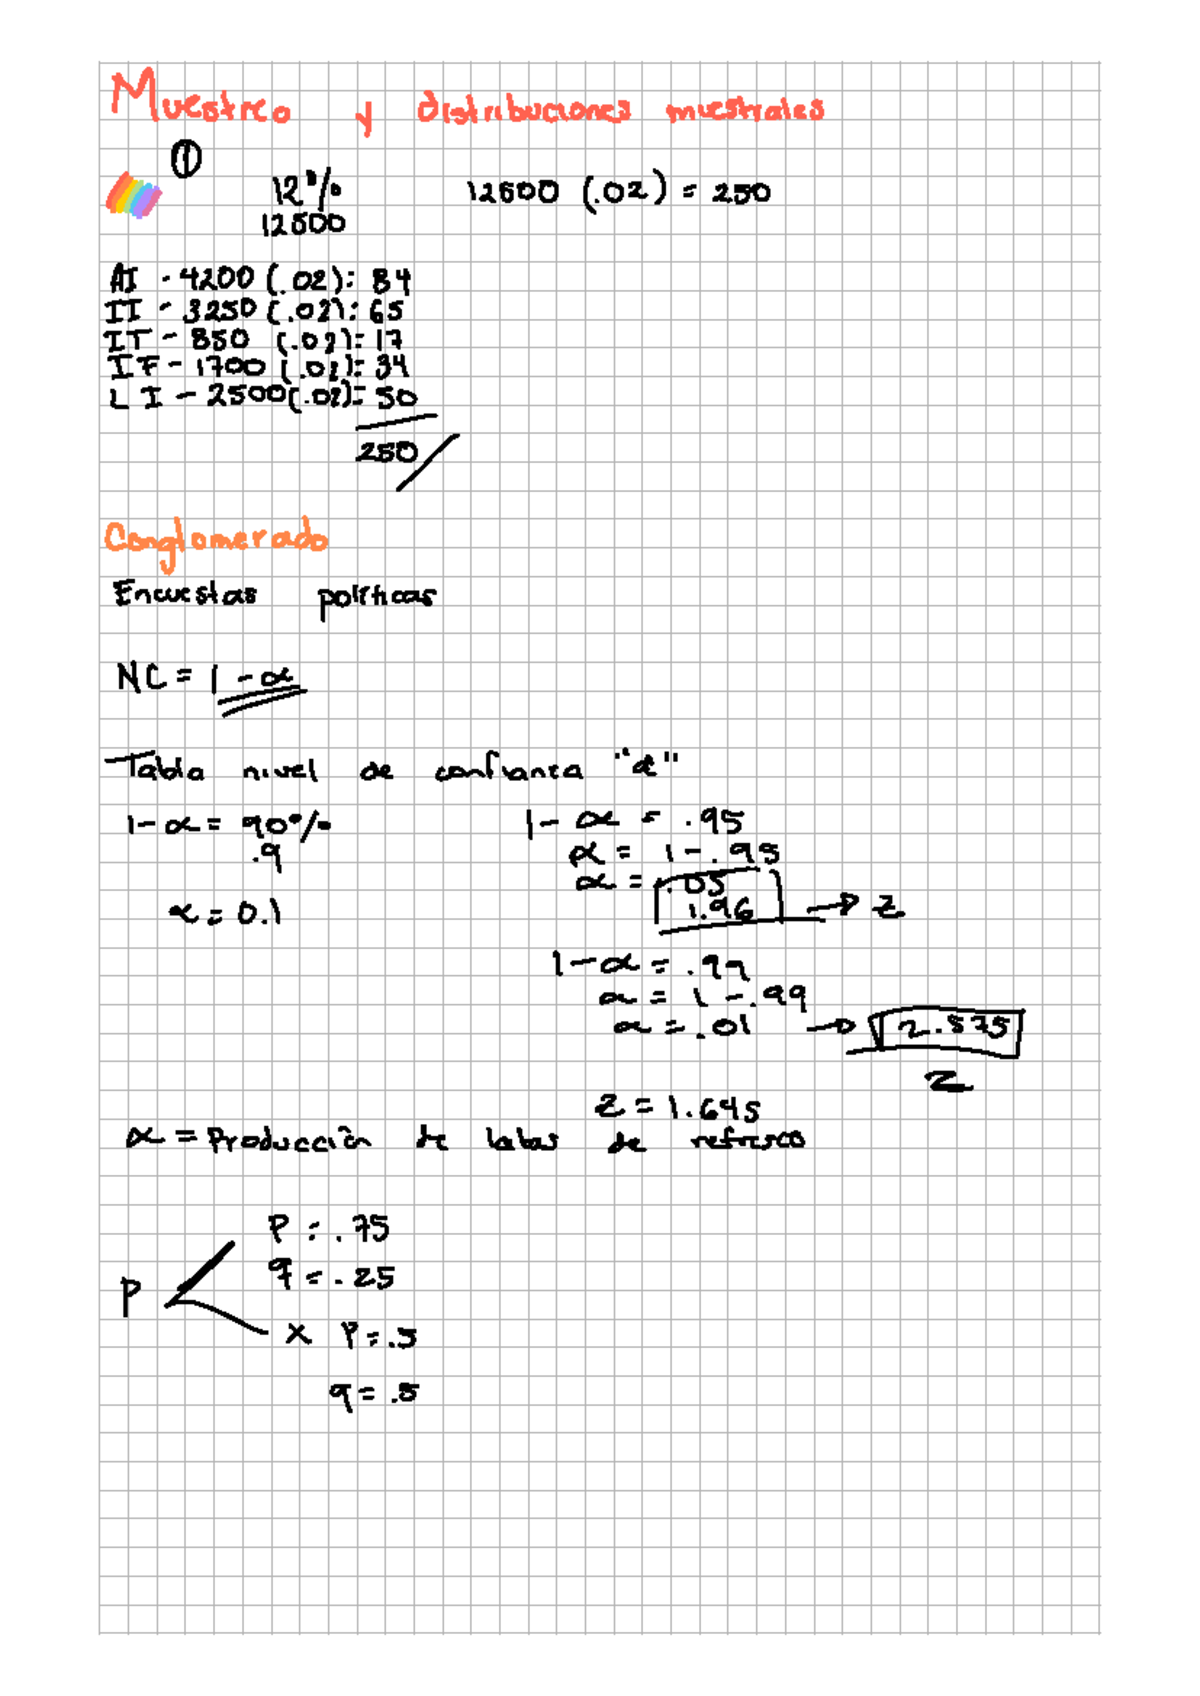 Muestreo y distribuciones muestrales
①
12% 12500 (.02) = 250
12500
AI - 4200 (.02): 84
II - 3250 (.02): 65
IT - 850 (.02): 17
IF - 1700 (.02): 34
LI - 2500(.02): 50
250
Conglomerado
Encuestas políticas
NC = 1 - α
Tabla nivel de confianza "α"
1-α = 90% 1-α = .95
.9 α = 1-.95
α = .05
α = 0.1 1.96 → Z
1-α = .99
α = 1-.99
α = .01 → 2.575
Z
Z = 1.645
α = Producción de latas de refresco
P = .75
q = .25
P
x P = .5
q = .5